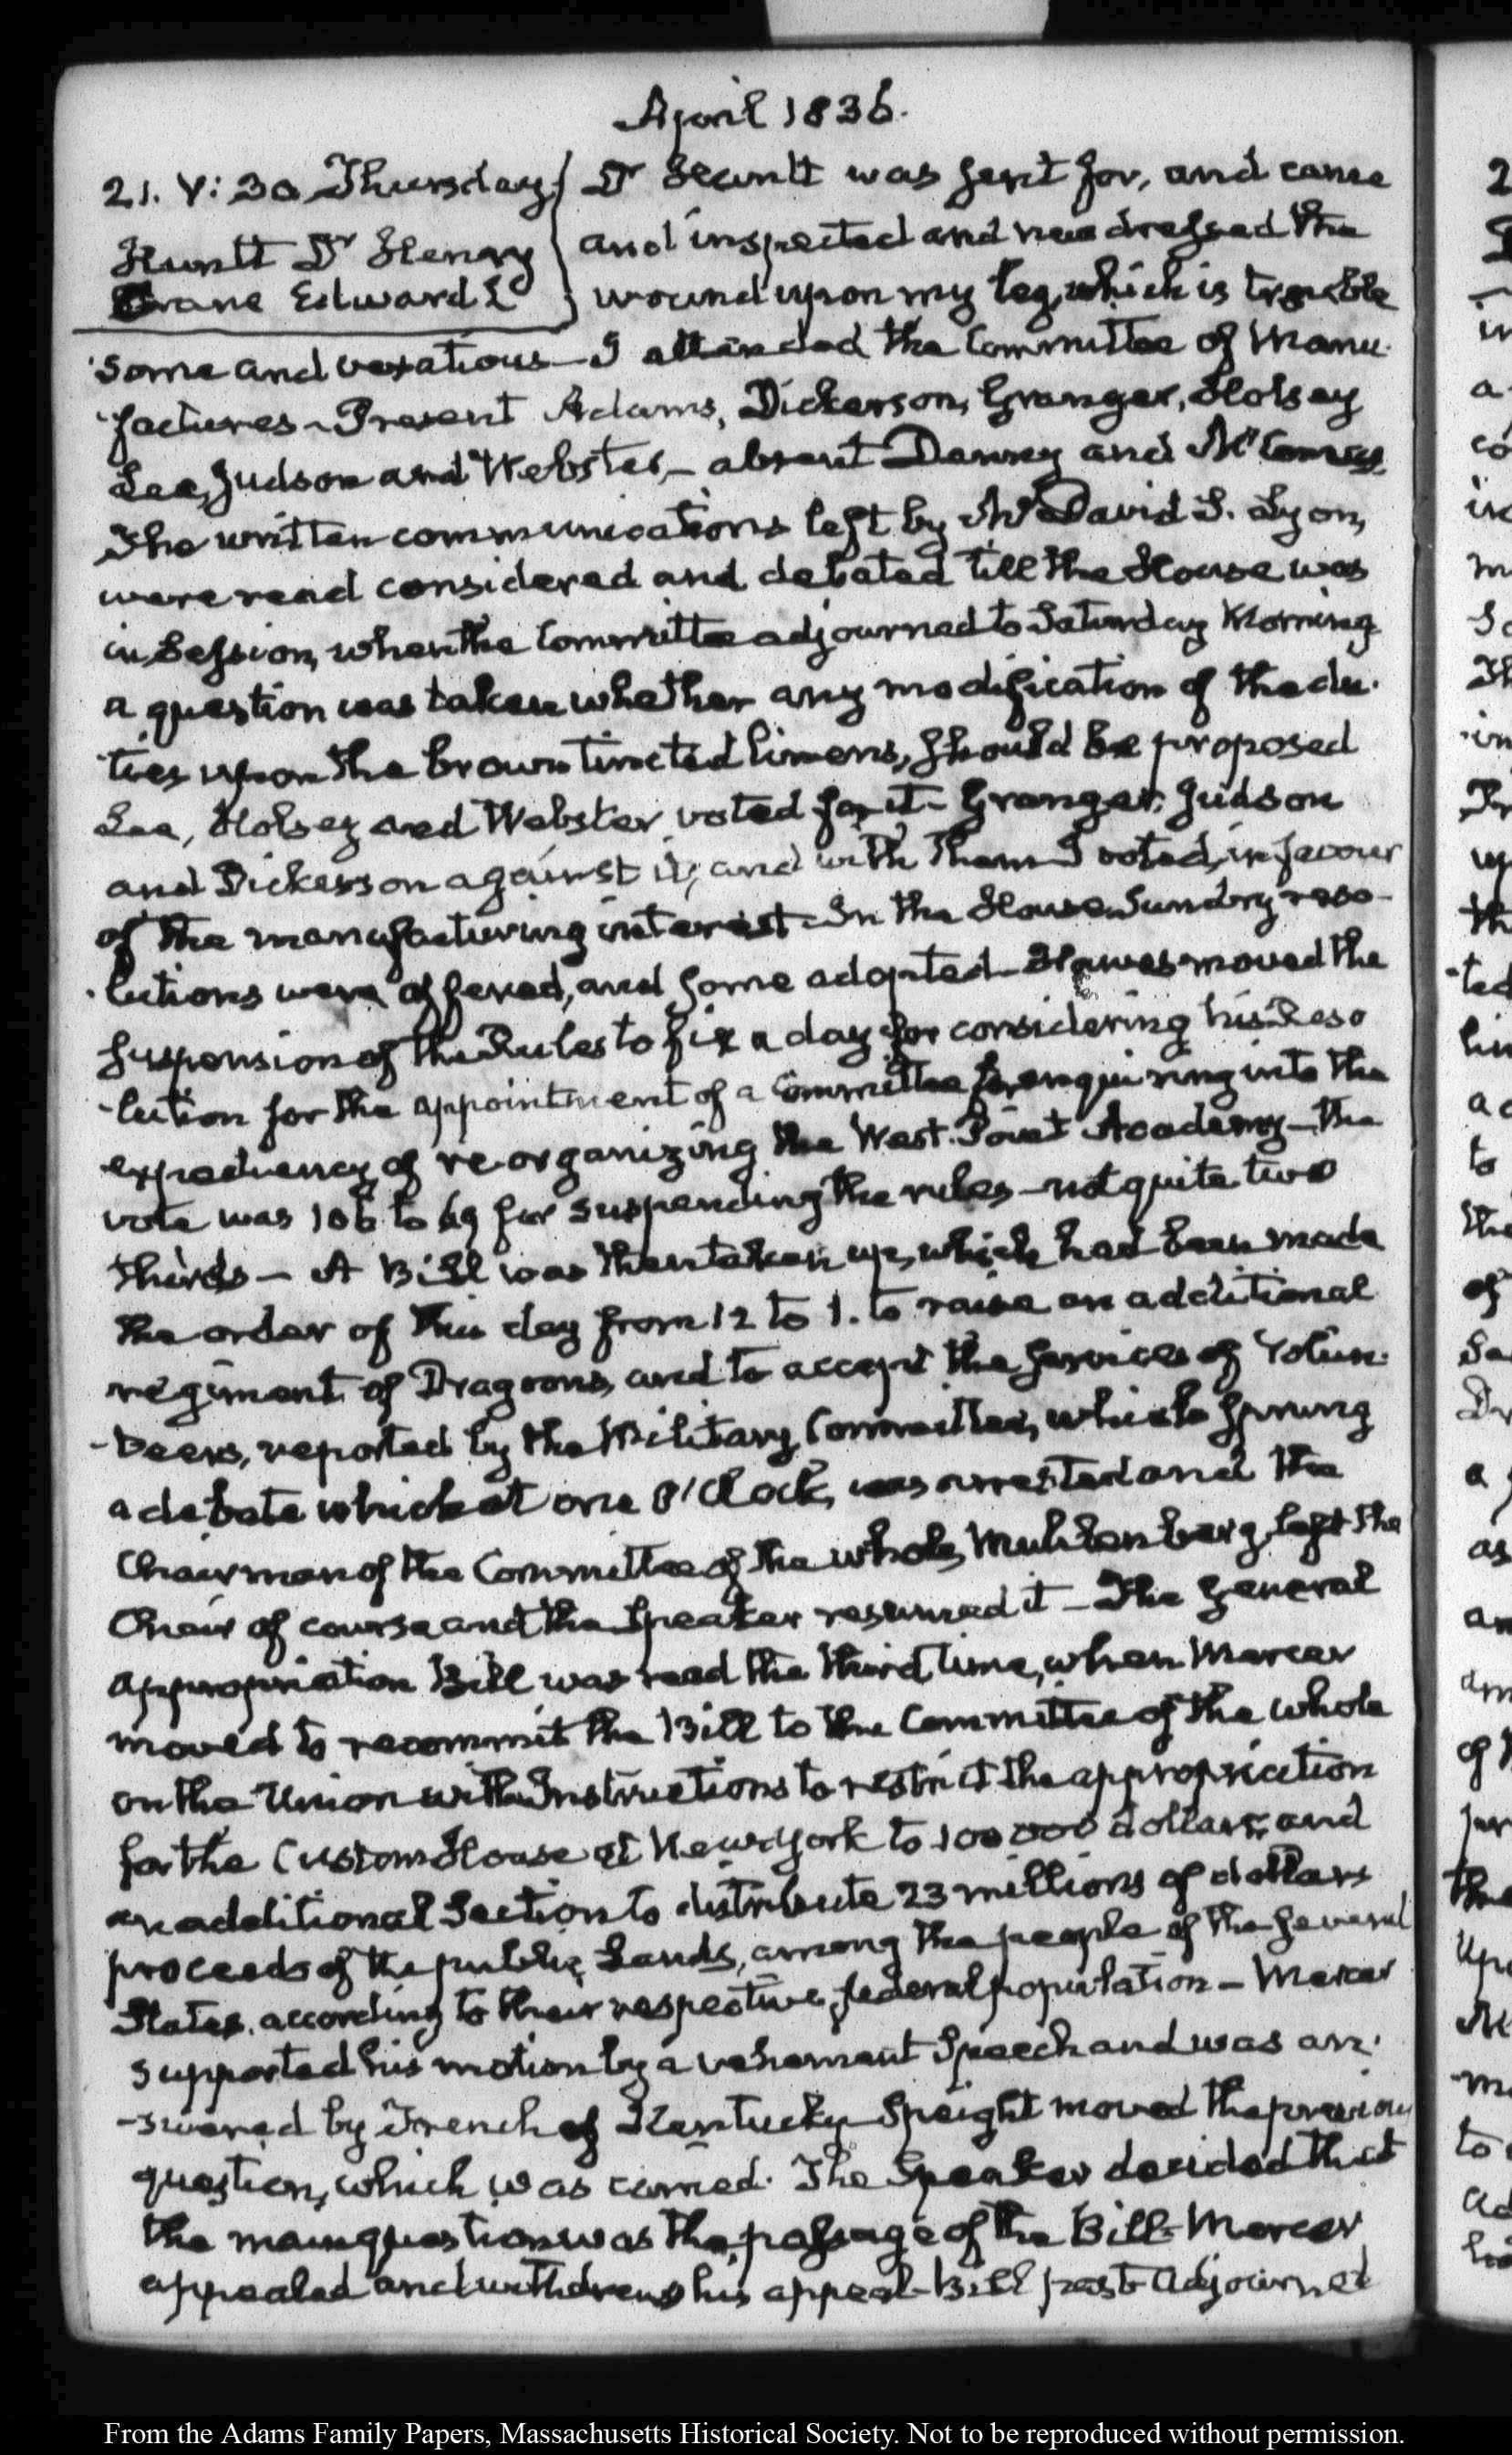 April 1836.
21. V: 30 Thursday. Dr Huntt was sent for, and came
Huntt Dr Henry and inspected and new dressed the
Crane Edward L. wound upon my leg, which is trouble
some and vexatious— I attended the Committee of Manu-
-factures— Present Adams, Dickerson, Granger, Holsey
Lee, Judson and Webster,— absent Denny and McComas.
The written communications left by Mr David S. Lyon,
were read considered and debated till the House was
in Session, when the Committee adjourned to Saturday Morning
a question was taken whether any modification of the du-
ties upon the brown tincted linens, should be proposed
Lee, Holsey and Webster voted for it— Granger, Judson
and Dickerson against it; and with them I voted, in favour
of the manufacturing interest— In the House, Sundry reso-
-lutions were offered, and some adopted— Hawes moved the
suspension of the Rules to fix a day for considering his Reso
-lution for the appointment of a Committee for enquiring into the
expediency of re-organizing the West-Point Academy— the
vote was 106 to 69 for suspending the rules— not quite two
thirds— A Bill was then taken up, which had been made
the order of this day from 12 to 1. to raise an additional
regiment of Dragoons, and to accept the services of Volun-
-teers, reported by the Military Committee, which sprung
a debate which at one O'Clock, was arrested and the
Chairman of the Committee of the whole, Muhlenberg, left the
Chair of course and the Speaker resumed it— The general
appropriation Bill was read the third time, when Mercer
moved to recommit the Bill to the Committee of the whole
on the Union with Instructions to restrict the appropriation
for the Custom House at New-York to 100000 dollars; and
an additional Section to distribute 23 millions of dollars
proceeds of the public Lands, among the people of the several
States, according to their respective, federal population— Mercer
supported his motion by a vehement Speech and was an-
-swered by French of Kentucky— Speight moved the previous
question, which was carried. The Speaker decided that
the main question was the passage of the Bill— Mercer
appealed and withdrew his appeal— Bill past— Adjourned
From the Adams Family Papers, Massachusetts Historical Society. Not to be reproduced without permission.